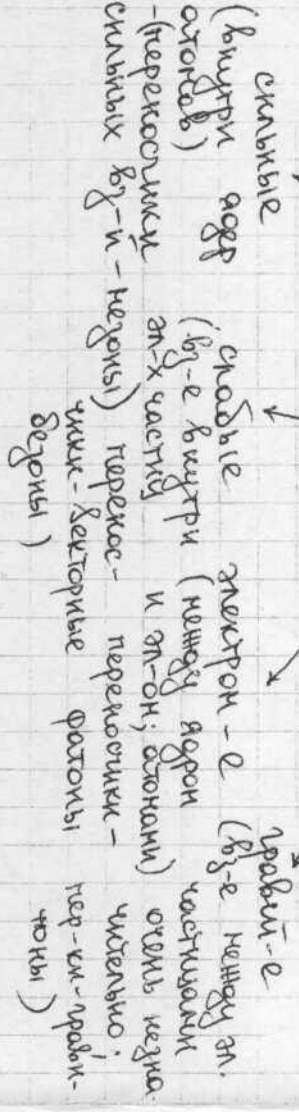 сильные
(внутри ядер
атомов)
-(переносчики
сильных вз-й - мезоны)
слабые
(вз-е внутри
эл-х частиц
перенос-
чики - векторные
безоны)
электром-е
(между ядром
и эл-он; атомами)
переносчики -
фатоны
гравит-е
(вз-е между эл.
частицами
очень незна-
чительно;
пер-ки - грави-
тоны)